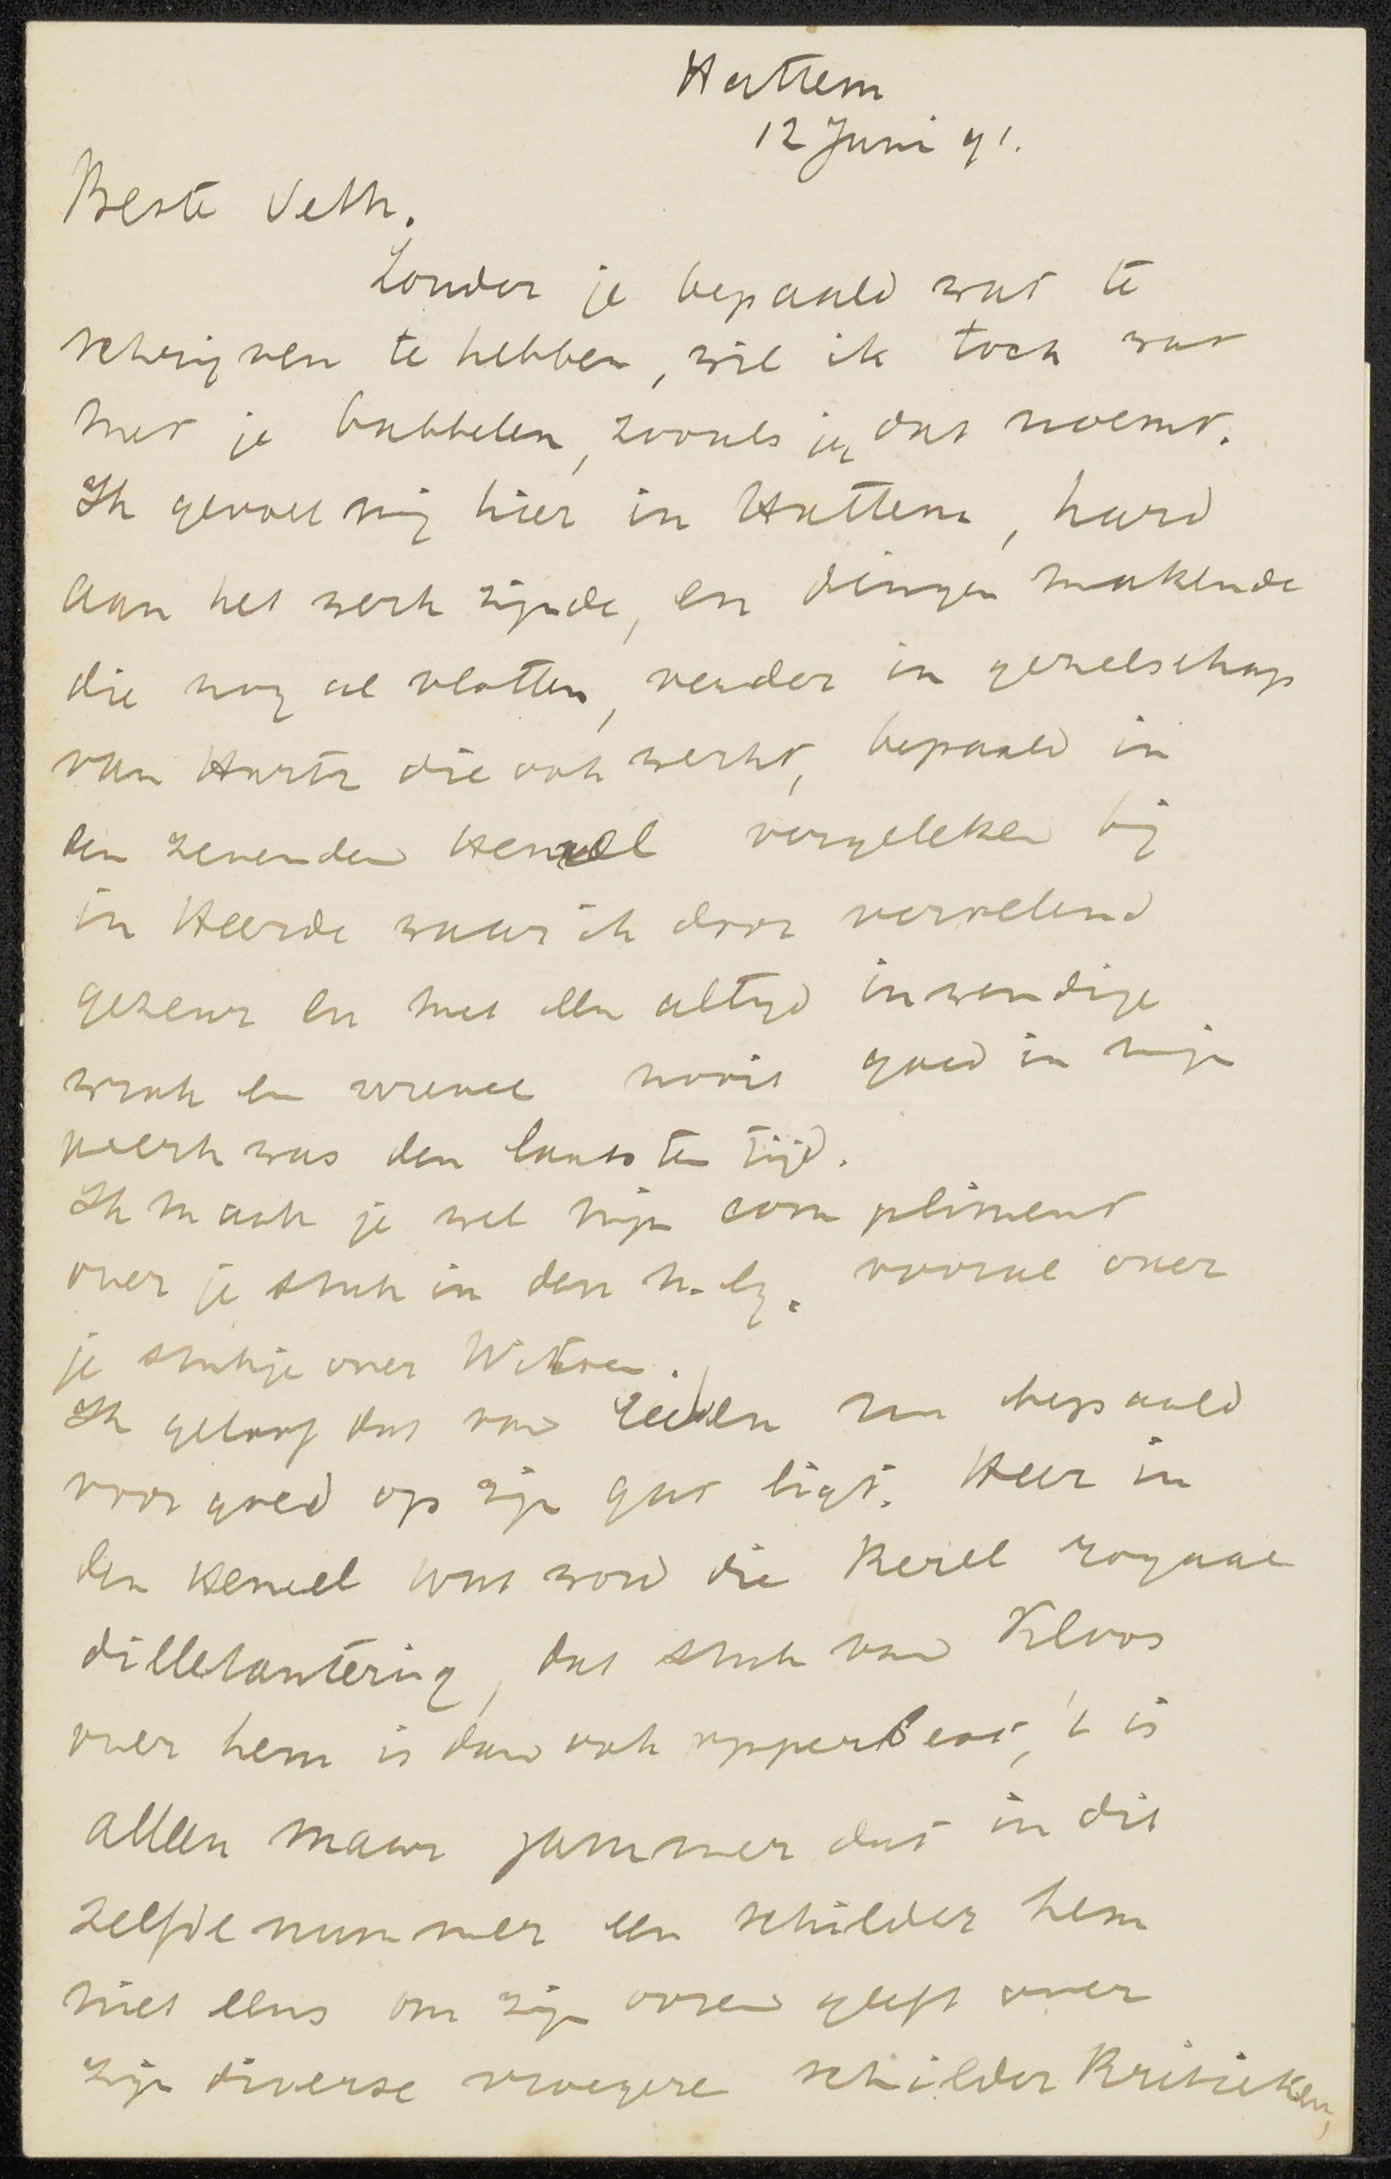 Hattem
12 Juni 91.
Beste Veth.
Zonder je bepaald wat te
schrijven te hebben, wil ik toch wat
met je babbelen, zooals je dat noemt.
Ik gevoel mij hier in Hattem, hard
aan het werk zijnde, en dingen makende
die nog al vlotten, verder in gezelschap
van Hartz die ook werkt, bepaald in
den zevenden Hemel vergeleken bij
in Heerde waar ik door vervelend
gezeur en met een altijd inwendige
wrok en wrevel nooit goed in mijn
werk was den laatsten tijd.
Ik maak je wel mijn compliment
over je stuk in den N. G. vooral over
je stukje over Witsen.
Ik geloof dat van Eeden nu bepaald
voor goed op zijn gat ligt. Heer in
den Hemel wat word die Kerel royaal
dilletanterig, dat stuk van Kloos
over hem is dan ook opperbest, 't is
alleen maar jammer dat in dit
zelfde nummer een schilder hem
niet eens om zijn ooren geeft over
zijn diverse vroegere schilder Kritieken,